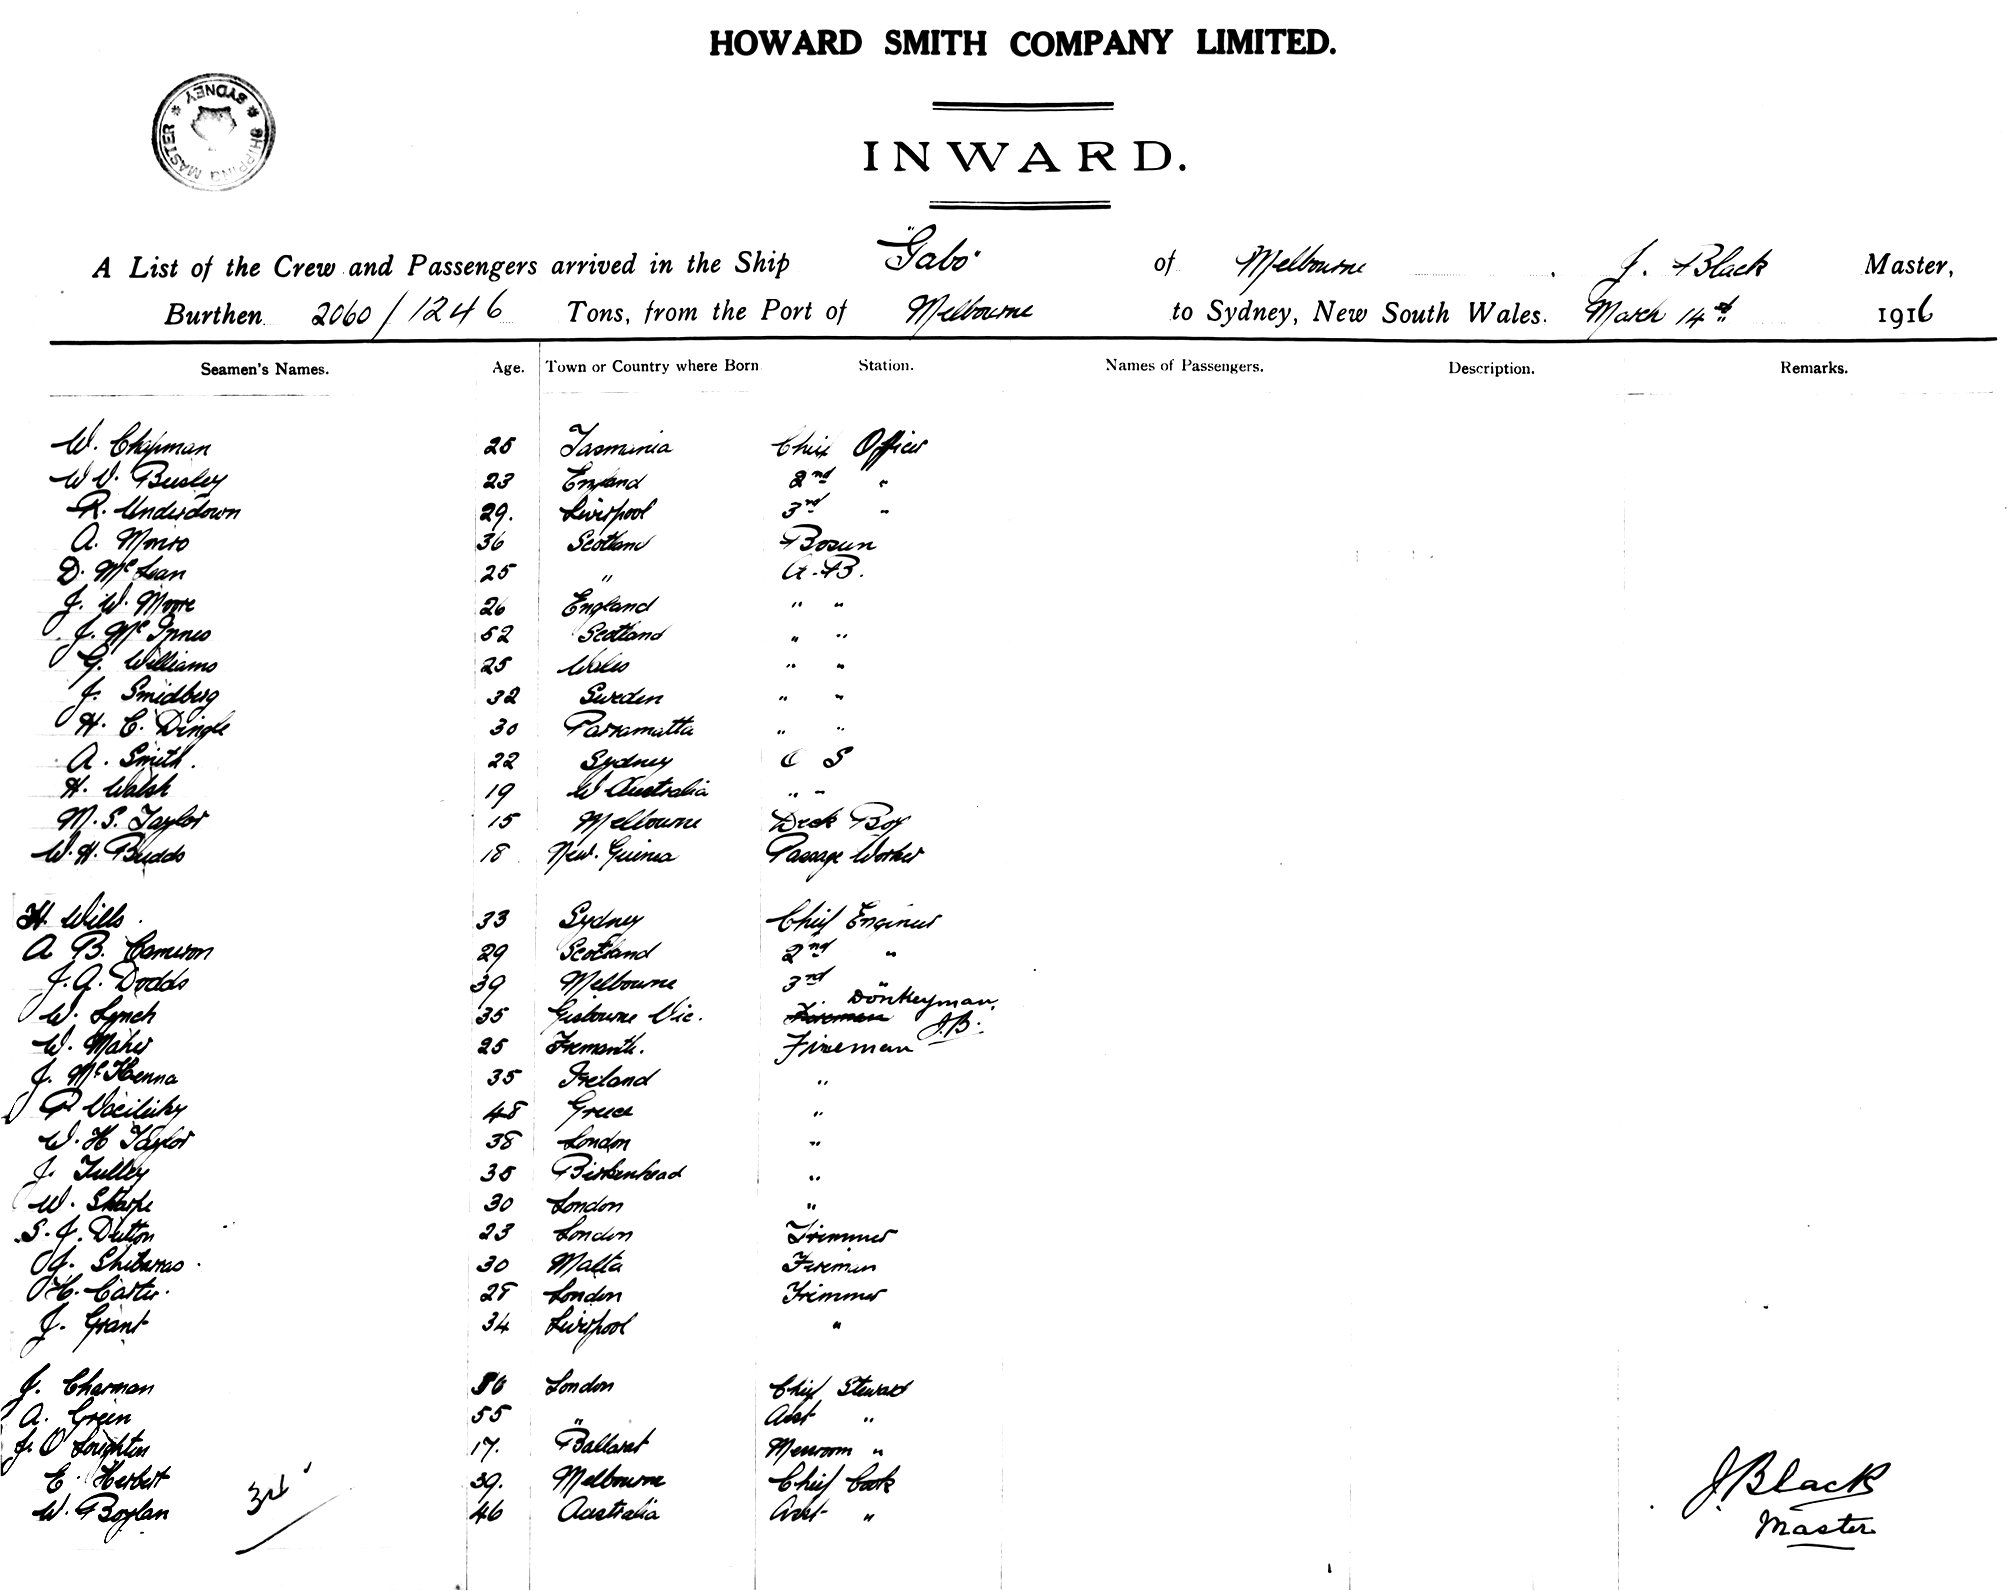 HOWARD SMITH COMPANY LIMITED.
SHIPPING MASTER * SYDNEY *
INWARD.
A List of the Crew and Passengers arrived in the Ship "Gabo" of Melbourne, J. Black Master,
Burthen 2060/1246 Tons, from the Port of Melbourne to Sydney, New South Wales. March 14th 1916
Seamen's Names. Age. Town or Country where Born Station. Names of Passengers. Description. Remarks.
W. Chapman 25 Tasmania Chief Officer
W V. Beesley 23 England 2nd "
R. Underdown 29. Liverpool 3rd "
A. Monro 36 Scotland Bosun
D. McLean 25 " A.B.
J. W. Moore 26 England " "
J. McInnes 52 Scotland " "
G. Williams 25 Wales " "
J. Smidberg 32 Sweden " "
H. C. Dingle 30 Parramatta " "
A. Smith. 22 Sydney O S
H. Walsh 19 W Australia " "
M. S. Taylor 15 Melbourne Deck Boy
W. H. Budds 18 New. Guinea Passage Worker
H. Wills. 33 Sydney Chief Engineer
A B. Cameron 29 Scotland 2nd "
J. A. Dodds 39 Melbourne 3rd "
W. Lynch 35 Gisbourne Vic. Fireman Donkeyman. J.B.
W. Maher 25 Fremantle. Fireman
J. McKenna 35 Ireland "
P 48 Greece "
W. H Taylor 38 London "
J. Tulley 35 Birkenhead "
W. Sharpe 30 London "
S. J. Dutton 23 London Trimmer
J. Shiberras. 30 Malta Fireman
H. Carter. 28 London Trimmer
J. Grant 34 Liverpool "
J. Charman 56 London Chief Steward
A. Green 55 " Asst "
J. O'Loughlin 17. Ballarat Messroom "
E. Herbert 39. Melbourne Chief Cook
W. Boylan 46 Australia Asst "
34
J. Black
Master